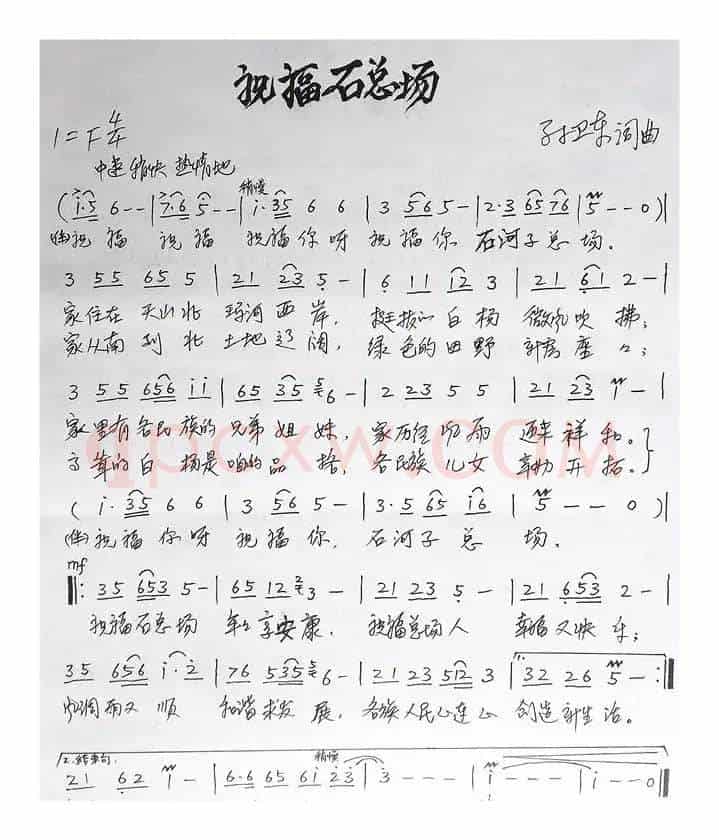 祝福石总场
1=F 4/4
孙卫东词曲
中速稍快 热情地
稍慢
(i·5 6--|7·6 5--|i·35 6 6|3 56 5-|2·3 65 76|5--0)|
(伴)祝福 祝福 祝福你呀 祝福你 石河子总场.
3 55 65 5|21 23 5-|6 11 12 3|21 61 2-|
家住在天山北 玛河西岸, 挺拔的白杨 微风吹拂;
家从南到北 土地辽阔, 绿色的田野
3 55 656 ii|65 35 6-|2 23 5 5|21 23 1-|
家里有各民族的兄弟姐妹, 家历经风雨 迎来祥和.
的白杨是咱的品格, 各民族儿女 开拓.
(i·35 6 6|3 56 5-|3·5 65 i6|5--0)|
(伴)祝福你呀 祝福你, 石河子总场.
mf
‖:35 653 5-|65 12 3-|21 23 5-|21 653 2-|
祝福石总场 年年享安康, 祝福总场人 幸福又快乐;
35 656 i·2|76 535 6-|21 23 512 3|32 26 5-:‖
风调雨又顺 和谐求发展, 各族人民心连心 创造新生活.
2.结束句 稍慢
21 62 1-|6·6 65 6i 23|3---|i---|i--0‖